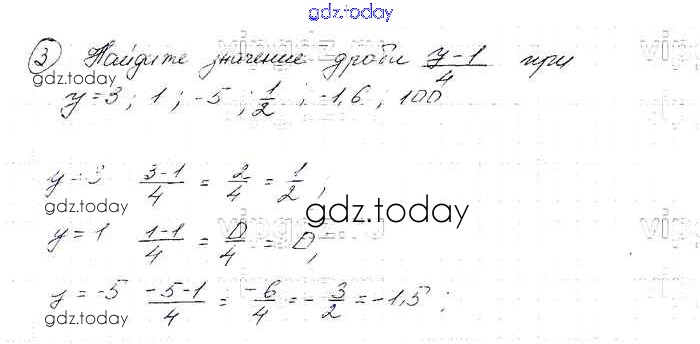 gdz.today
③ Найдите значение дроби (y-1)/4 при
gdz.today
y=3; 1; -5; 1/2; -1,6; 100
y=3 (3-1)/4 = 2/4 = 1/2;
gdz.today
gdz.today
y=1 (1-1)/4 = 0/4 = 0,
y=-5 (-5-1)/4 = -6/4 = -3/2 = -1,5;
gdz.today